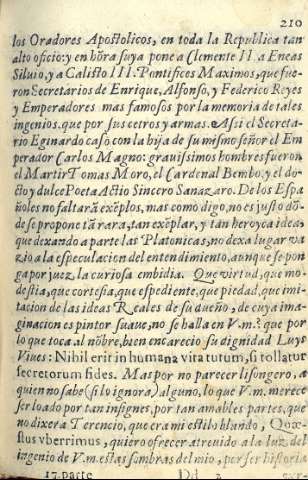 210
los Oradores Apostolicos, en toda la Republica tan
alto oficio: y en hõra suya pone a Clemente II. a Eneas
Siluio, y a Calisto III. Pontifices Maximos, que fue-
ron Secretarios de Enrique, Alfonso, y Federico Reyes
y Emperadores mas famosos por la memoria de tales
ingenios, que por sus cetros y armas. Assi el Secreta-
rio Eginardo casò con la hija de su mismo señor el Em
perador Carlos Magno: grauissimos hombres fueron
el Martir Tomas Moro, el Cardenal Bembo, y el do-
cto y dulce Poeta Actio Sincero Sanazaro. De los Espa
ñoles no faltarã exẽplos, mas como digo, no es justo dõ-
de se propone tã rara, tan exẽplar, y tan heroyca idea,
que dexando a parte las Platonicas, no dexa lugar va
zio a la especulacion del entendimiento, aunque se pon
ga por juez, la curiosa embidia. Que virtud, que mo-
destia, que cortesia, que espediente, que piedad, que imi-
tacion de las ideas Reales de su dueño, de cuya ima-
ginacion es pintor suaue, no se halla en V.m? que por
lo que toca al nõbre, bien encarecio su dignidad Luys
Viues: Nihil erit in humana vita tutum, si tollatur
secretorum fides. Mas por no parecer lisongero, a
quien no sabe (si lo ignora) alguno, lo que V.m. merece
ser loado por tan insignes, por tan amables partes, que
no dixera Terencio, que era mi estilo blando, Quæ-
stus vberrimus, quiero ofrecer atreuido a la luz, del
ingenio de V.m. estas sombras del mio, por ser historia
17. parte Dd 2